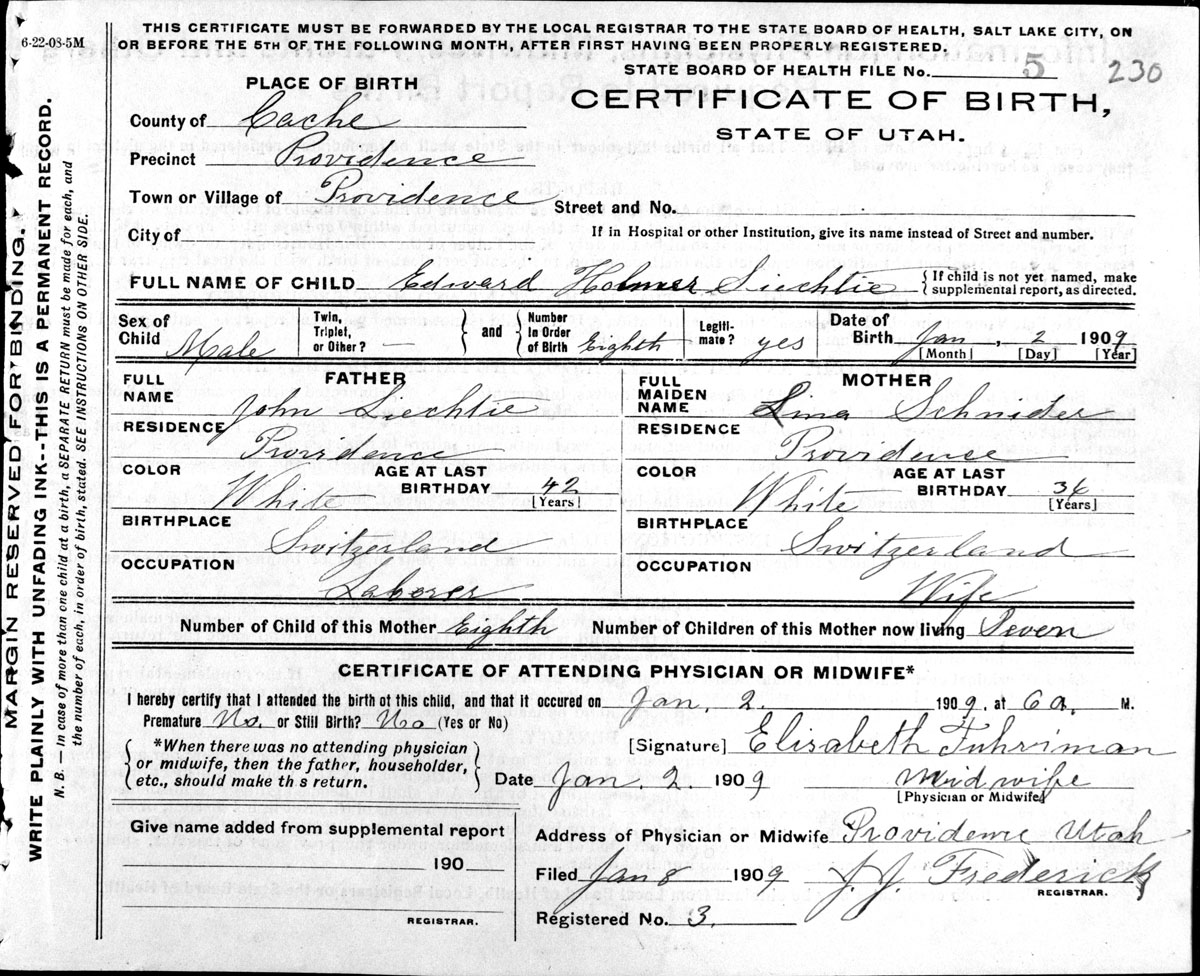 THIS CERTIFICATE MUST BE FORWARDED BY THE LOCAL REGISTRAR TO THE STATE BOARD OF HEALTH, SALT LAKE CITY, ON
6-22-08-5M
OR BEFORE THE 5TH OF THE FOLLOWING MONTH, AFTER FIRST HAVING BEEN PROPERLY REGISTERED.
STATE BOARD OF HEALTH FILE No. 5 230
PLACE OF BIRTH
CERTIFICATE OF BIRTH,
STATE OF UTAH.
County of Cache
Precinct Providence
Town or Village of Providence
Street and No.
City of
If in Hospital or other Institution, give its name instead of Street and number.
FULL NAME OF CHILD Edward Holmer Liechtie { If child is not yet named, make supplemental report, as directed.
Sex of Child Male Twin, Triplet, or Other? — } and { Number in Order of Birth Eighth Legiti-mate? yes Date of Birth Jan, 2 1909
[Month] [Day] [Year]
FATHER
FULL NAME John Liechtie
RESIDENCE
Providence
COLOR White AGE AT LAST BIRTHDAY 42
[Years]
BIRTHPLACE
Switzerland
OCCUPATION
Laborer
MOTHER
FULL MAIDEN NAME Lina Schnider
RESIDENCE
Providence
COLOR White AGE AT LAST BIRTHDAY 36
[Years]
BIRTHPLACE
Switzerland
OCCUPATION
Wife
Number of Child of this Mother Eighth Number of Children of this Mother now living Seven
CERTIFICATE OF ATTENDING PHYSICIAN OR MIDWIFE*
I hereby certify that I attended the birth of this child, and that it occured on Jan. 2. 1909, at 6a. M.
Premature No. or Still Birth? No (Yes or No)
{ *When there was no attending physician
or midwife, then the father, householder,
etc., should make th s return. }
[Signature] Elisabeth Fuhriman
Date Jan. 2. 1909 Midwife
[Physician or Midwife]
Give name added from supplemental report
190
REGISTRAR.
Address of Physician or Midwife Providence Utah
Filed Jan 8 1909 J. J. Frederick
REGISTRAR.
Registered No. 3.
MARGIN RESERVED FOR BINDING.
WRITE PLAINLY WITH UNFADING INK--THIS IS A PERMANENT RECORD.
N. B. — In case of more than one child at a birth, a SEPARATE RETURN must be made for each, and
the number of each, in order of birth, stated. SEE INSTRUCTIONS ON OTHER SIDE.